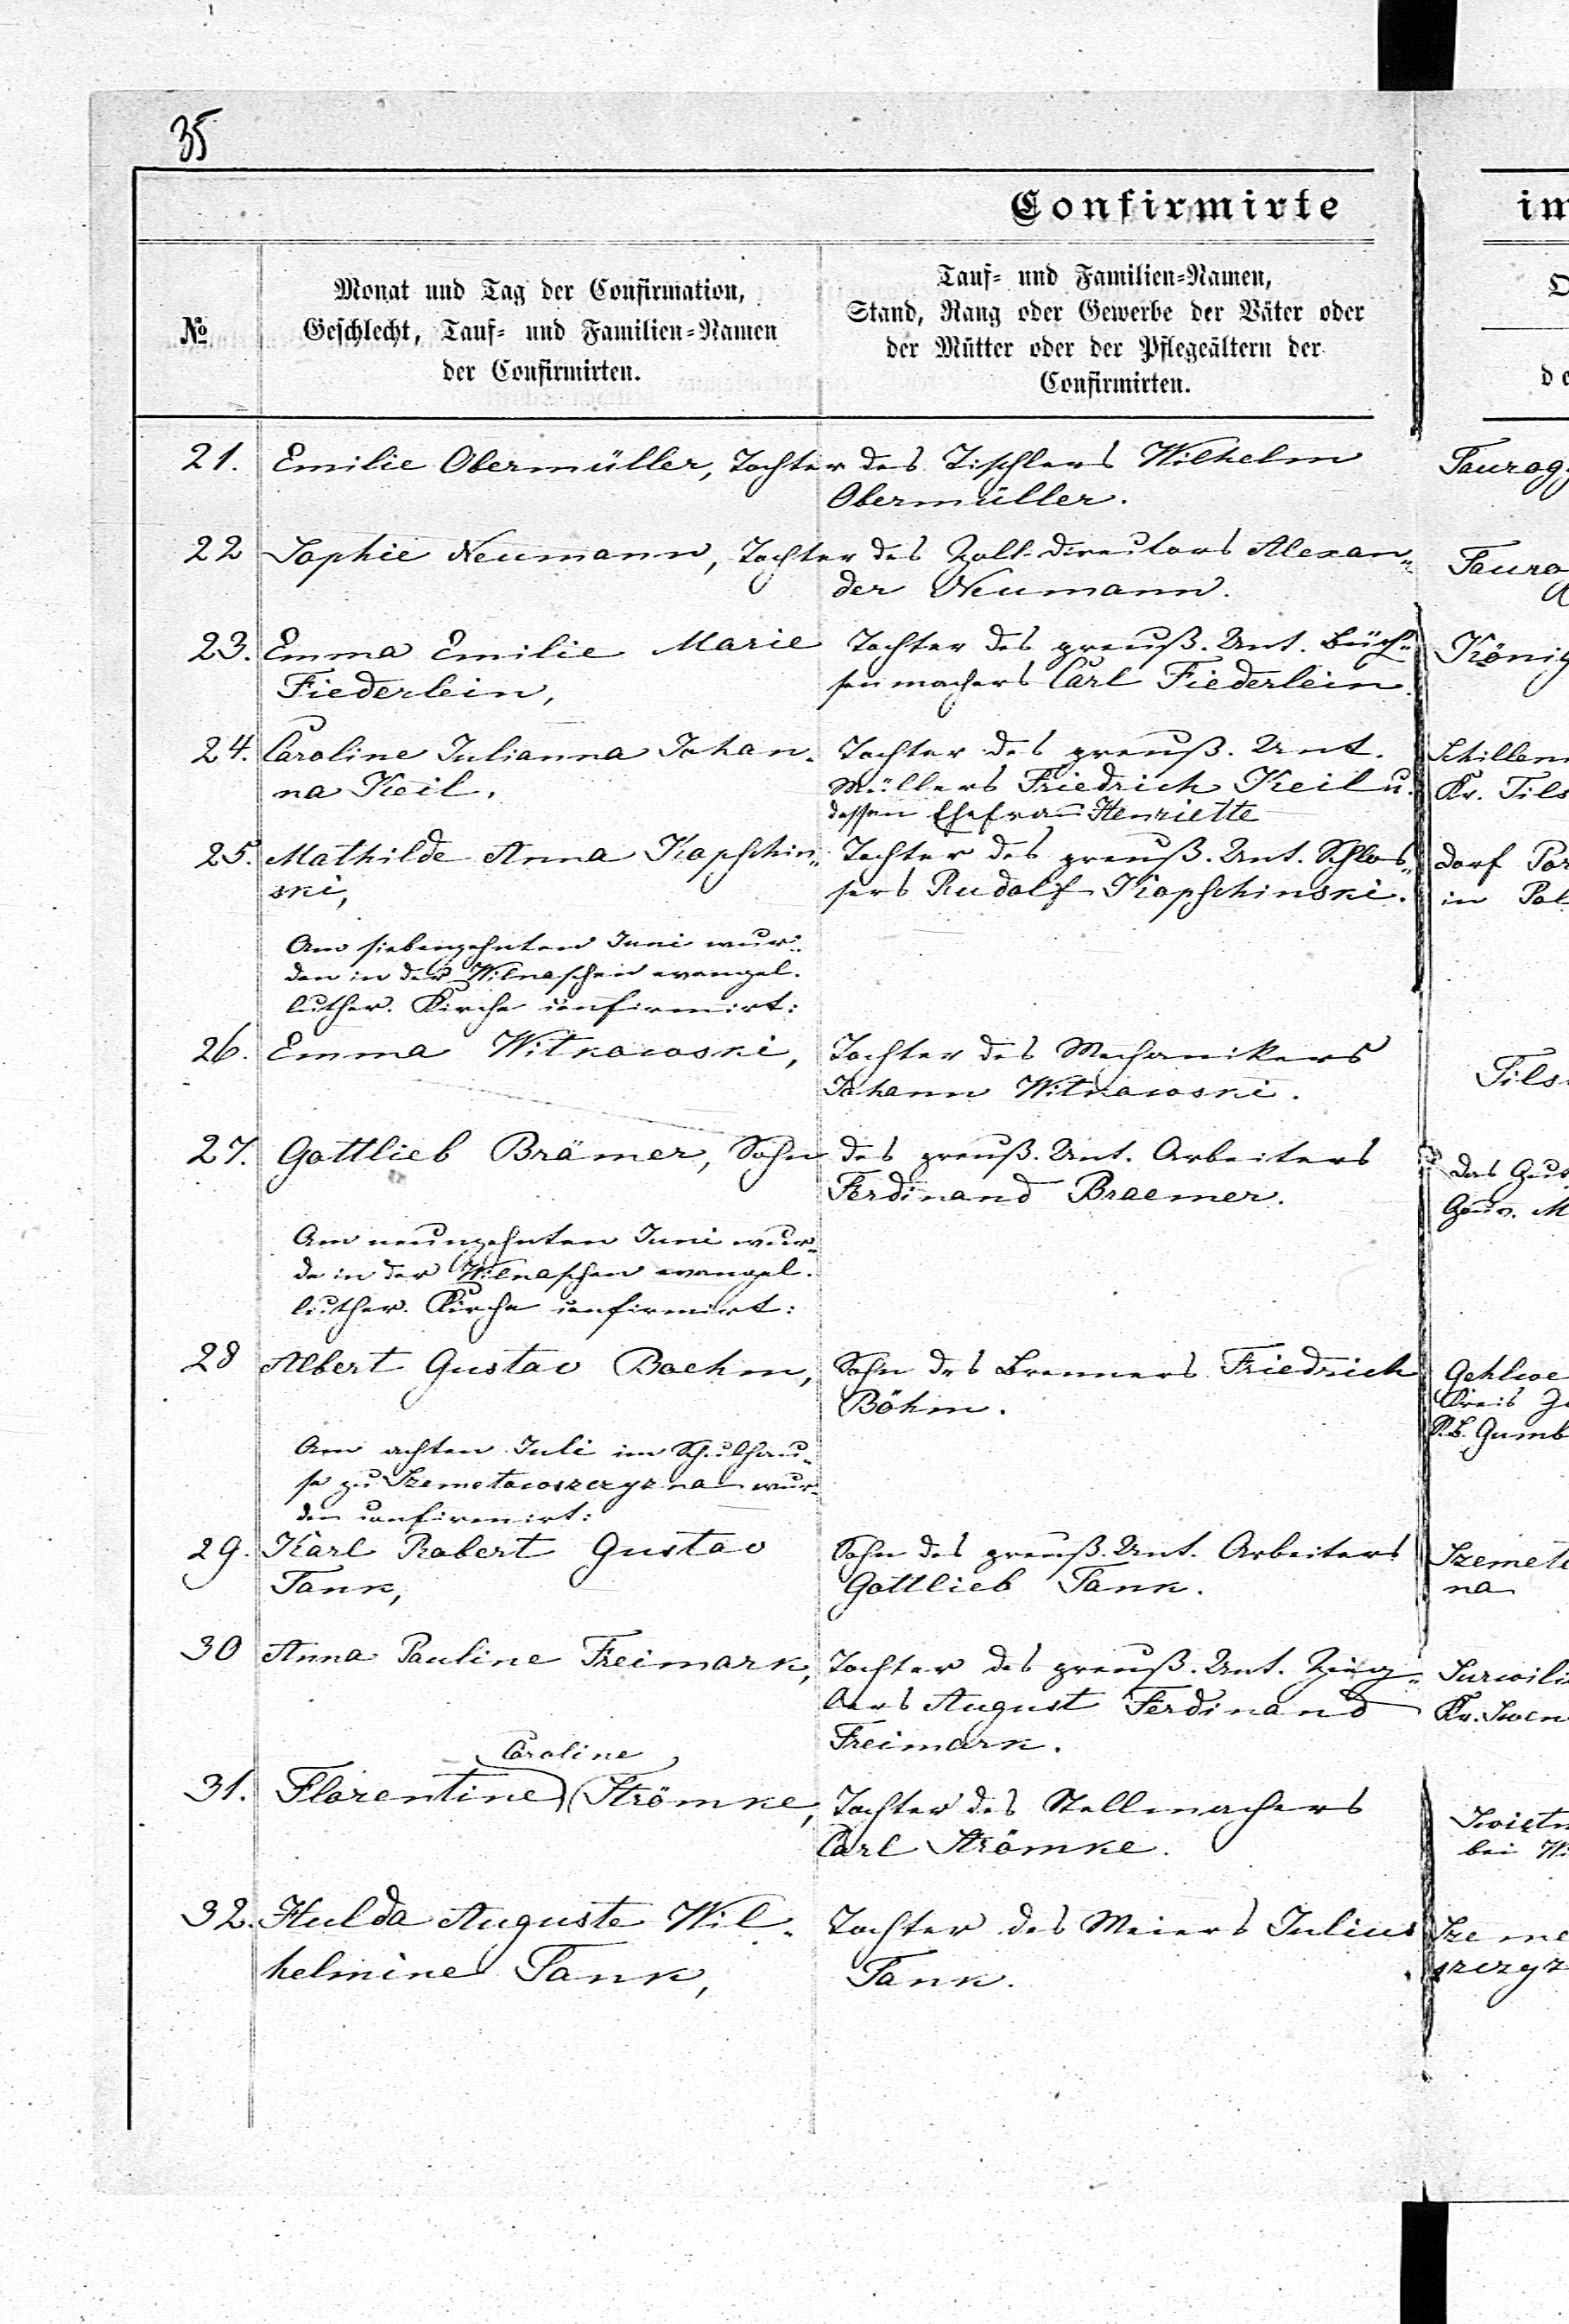 35
Confirmirte
im
№
Monat und Tag der Confirmation,
Geschlecht, Tauf- und Familien-Namen
der Confirmirten.
Tauf- und Familien-Namen,
Stand, Rang oder Gewerbe der Väter oder
der Mütter oder der Pflegeältern der
Confirmirten.
21. Emilie Obermüller, Tochter des Tischlers Wilhelm
Obermüller.
Taurogg
22 Sophie Neumann, Tochter des Zoll-Directors Alexan-
der Neumann.
Taurog
23. Emma Emilie Marie
Fiederlein,
Tochter des preuß. Unt. Büch-
senmachers Carl Fiederlein.
König
24. Caroline Julianna Johan-
na Keil,
Tochter des preuß. Unt.
Müllers Friedrich Keil u.
dessen Ehefrau Henriette
Schillen
Kr. Tils
25. Mathilde Anna Kapschin-
ski,
Tochter des preuß. Unt. Schlos-
sers Rudolf Kapschinski.
Dorf Por
in Pol
Am siebenzehnten Juni wur-
den in der Wilnaschen evangel.
luther. Kirche confirmirt:
26. Emma Witkowski,
Tochter des Mechanikers
Johann Witkowski.
Tils
27. Gottlieb Brämer, Sohn des preuß. Unt. Arbeiters
Ferdinand Braemer.
Das Gut
Gouv. M
Am neunzehnten Juni wur-
de in der Wilnaschen evangel.
luther. Kirche confirmirt:
28 Albert Gustav Boehm,
Sohn des Brenners Friedrich
Böhm.
Gehlwe
Kreis Go
R.B. Gumb
Am achten Juli im Schulhau-
se zu Szemetowoszczyzna wur-
den confirmirt:
29. Karl Robert Gustav
Tank,
Sohn des preuß. Unt. Arbeiters
Gottlieb Tank.
Szemeto
na
30 Anna Pauline Freimark,
Tochter des preuß. Unt. Zieg-
lers August Ferdinand
Freimark.
Surwili
Kr. Swen
Caroline
31. Florentine Strömke,
Tochter des Stellmachers
Carl Strömke.
Swietn
bei Wi
32. Hulda Auguste Wil-
helmine Tank,
Tochter des Meiers Julius
Tank.
Szeme
szczyz